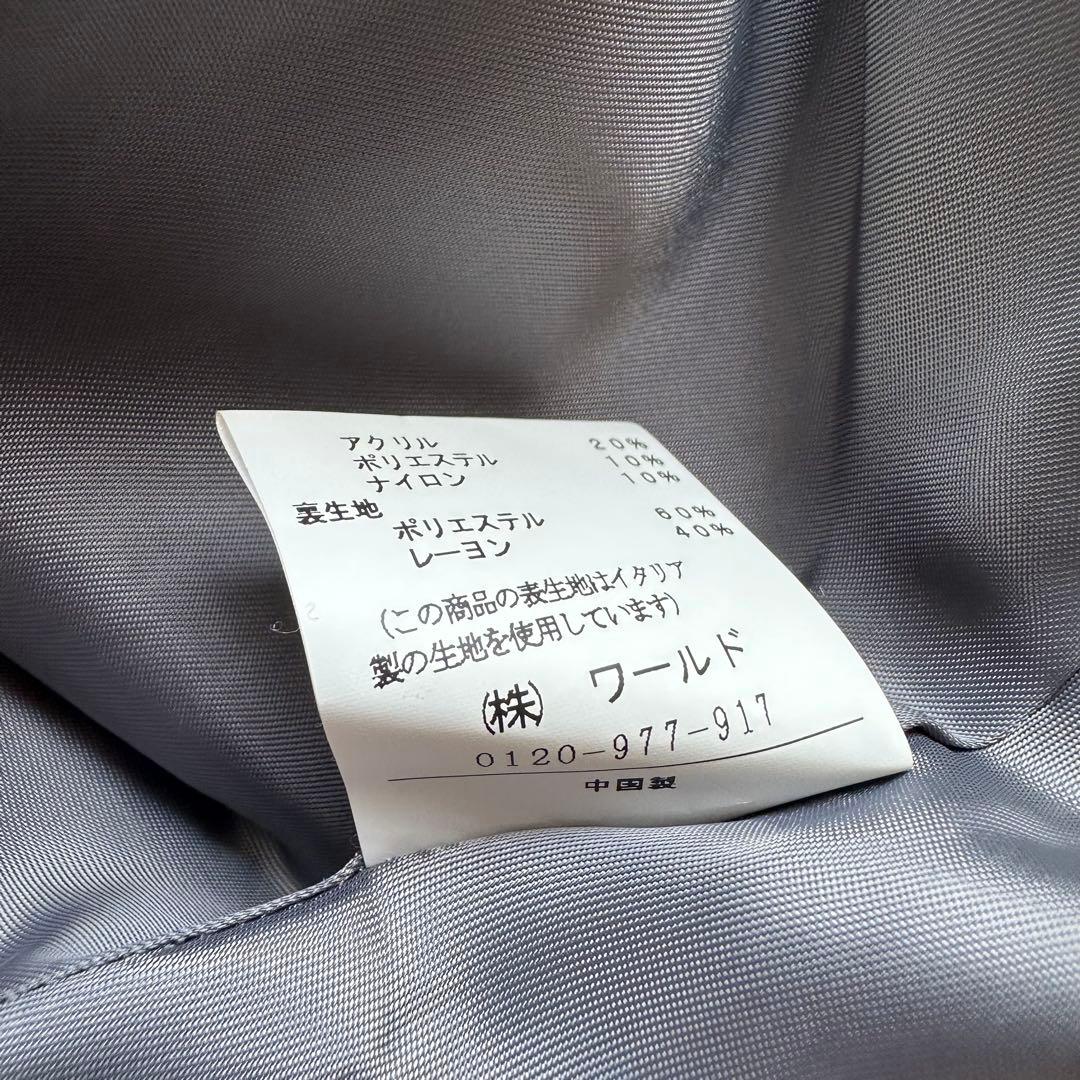 アクリル 20%
ポリエステル 10%
ナイロン 10%
裏生地
ポリエステル 60%
レーヨン 40%
(この商品の表生地はイタリア
製の生地を使用しています)
(株) ワールド
0120-977-917
中国製